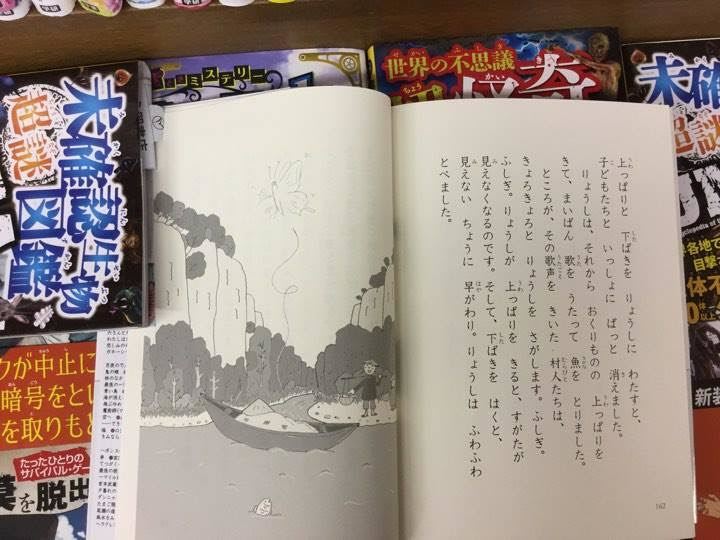 上っぱりと 下ばきを りょうしに わたすと、
子どもたちと いっしょに ぱっと 消えました。
りょうしは、それから おくりものの 上っぱりを
きて、まいばん 歌を うたって 魚を とりました。
ところが、その歌声を きいた 村人たちは、
きょろきょろと りょうしを さがします。ふしぎ。
ふしぎ。りょうしが 上っぱりを きると、すがたが
見えなくなるのです。そして、下ばきを はくと、
見えない ちょうに 早がわり。りょうしは ふわふわ
とべました。
162
未確認生物
超謎図鑑
ミステリー
世界の不思議
怪奇
未確
超謎
各地で
目撃
体不
新装
クが中止に
暗号をとい
を取りもと
たったひとりの
サバイバル・ゲー
漠を脱出
学研